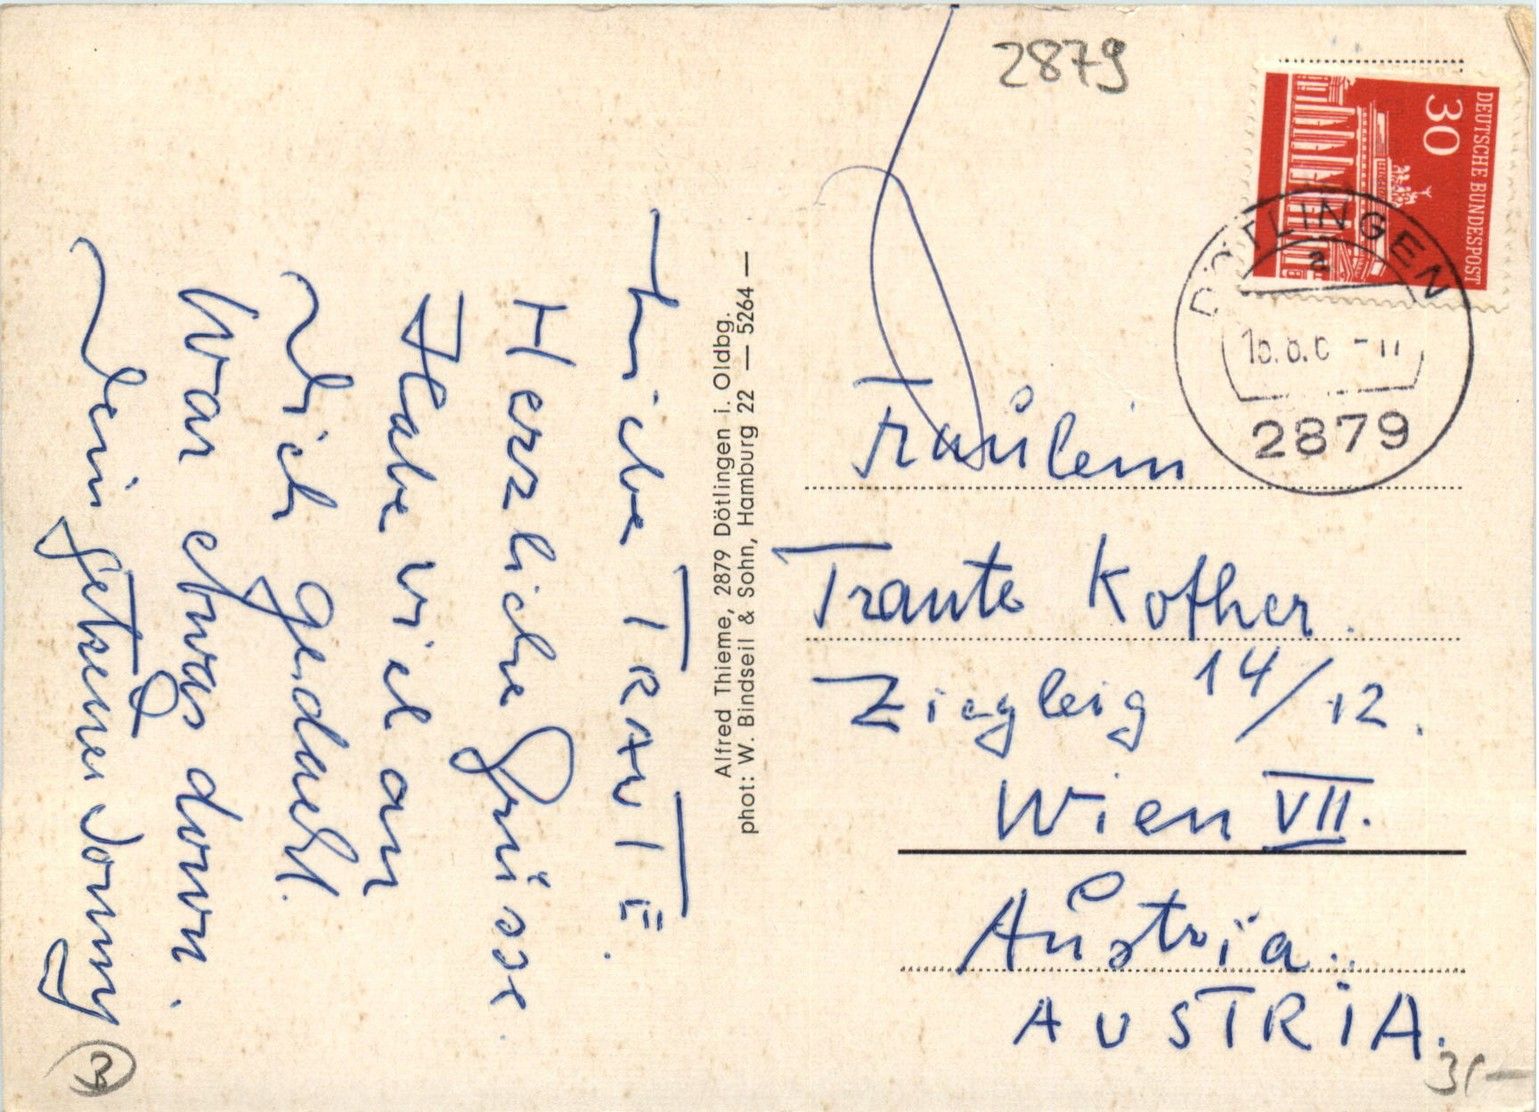 Liebe TRAUTE.
Herzliche Grüsse.
Habe viel an
dich gedacht.
War etwas down.
Dein getreuer Jonny
Alfred Thieme, 2879 Dötlingen i. Oldbg.
phot: W. Bindseil & Sohn, Hamburg 22 — 5264 —
2879
DEUTSCHE BUNDESPOST
30
DÖTLINGEN
a
2879
Fräulein
Traute Kofher.
Zieglerg 14/12.
Wien VII.
Austria..
AUSTRIA.
3